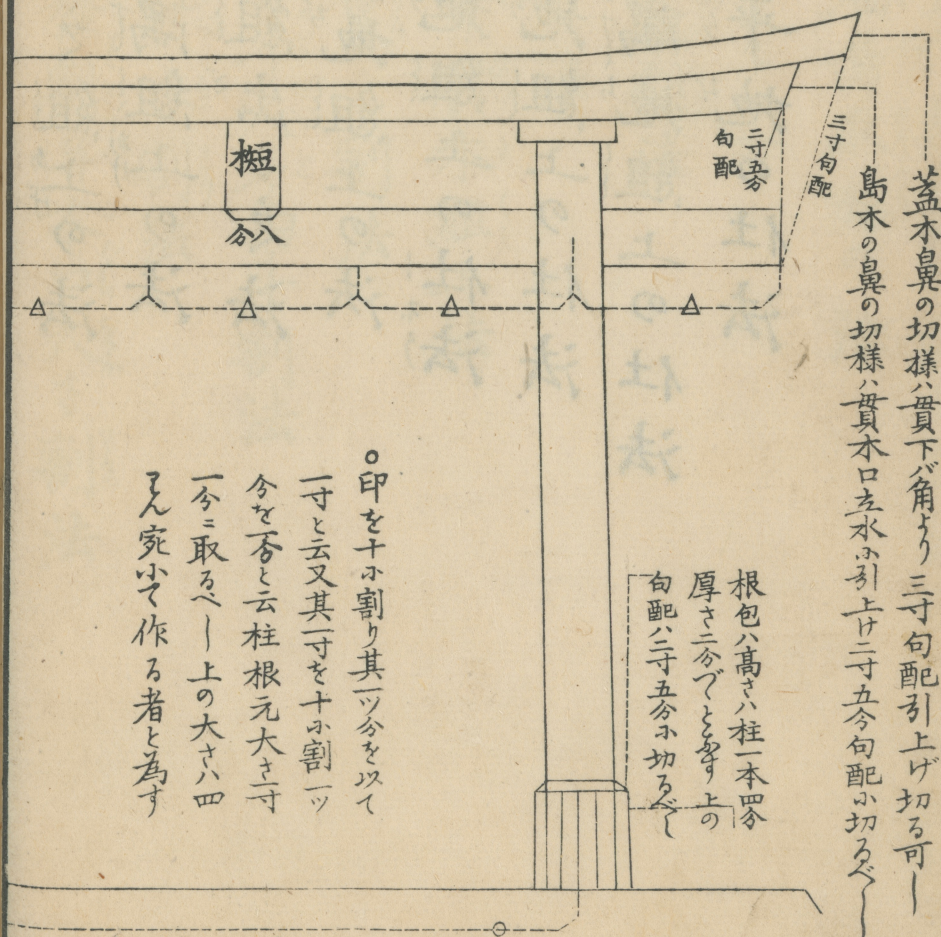 蓋木鼻の切様ハ貫下バ角より三寸句配引上げ切る可し
島木の鼻の切様ハ貫木口立水小引上け二寸五分句配小切るべし
三寸句配
二寸五分
句配
短
八分
根包ハ高さハ柱一本四分
厚さ二分づゝとなす上の
句配ハ二寸五分小切るべし
〇印を十小割り其一ツ分を以て
一寸と云又其一寸を十小割一ツ
分を一分と云柱根元大さ一寸
一分ニ取るべし上の大さハ四
ころん宛小て作る者と為す